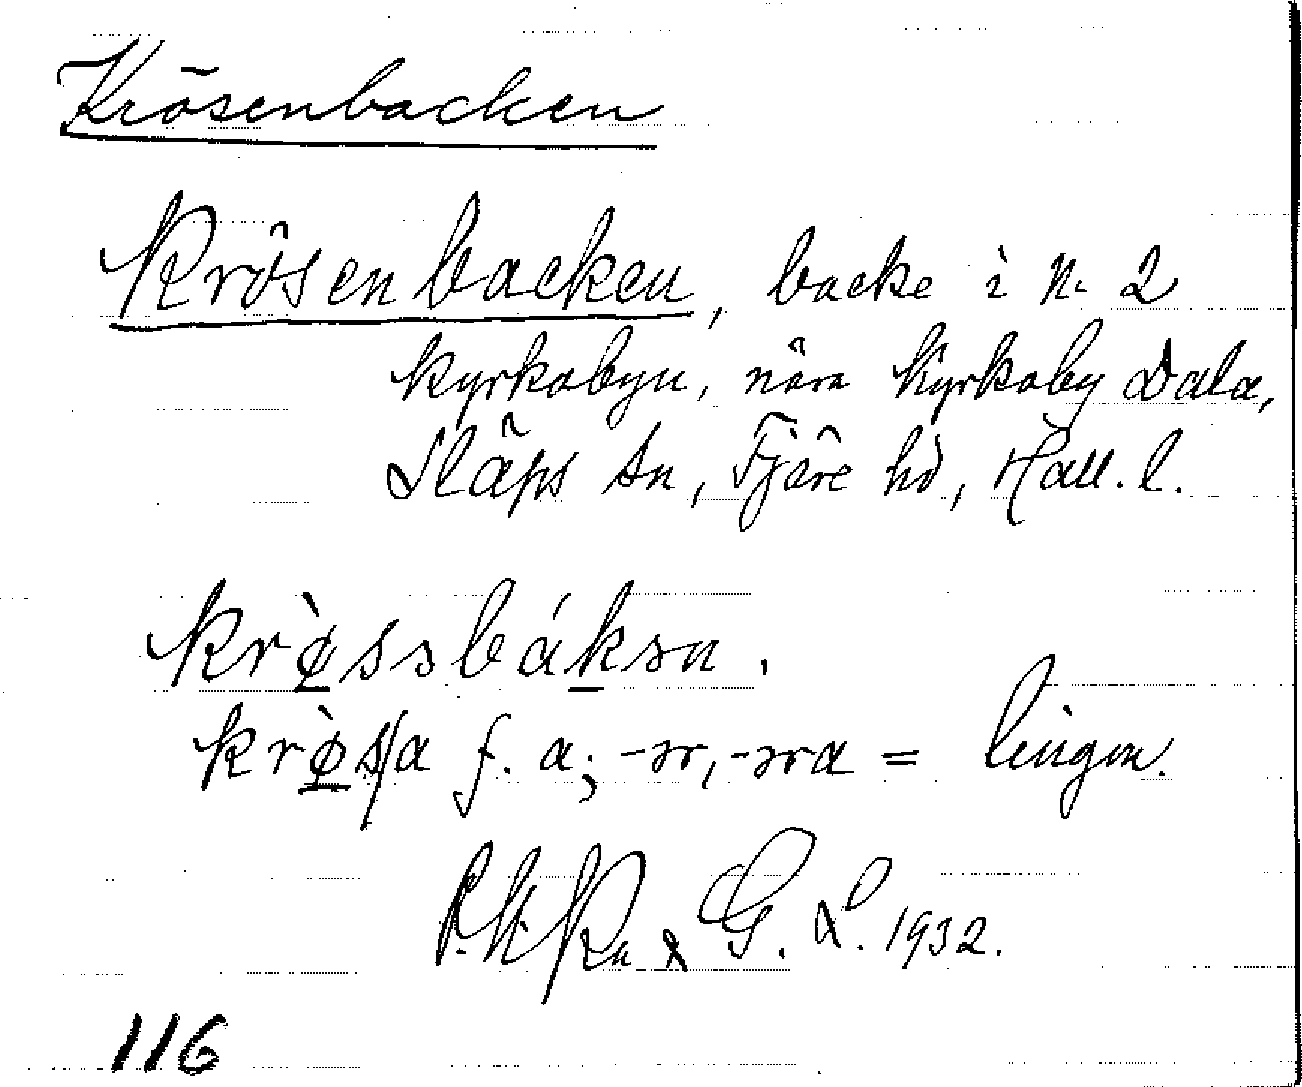 Krösenbacken
Krösenbacken, backe i N. 2
Kyrkobyn, nära Kyrkoby Dala,
Släps sn, Fjäre hd, Hall. l.
krø̀ssbáksn.
krø̀s/a f. a; -ər, -əra = lingon.
& G. L. 1932.
116